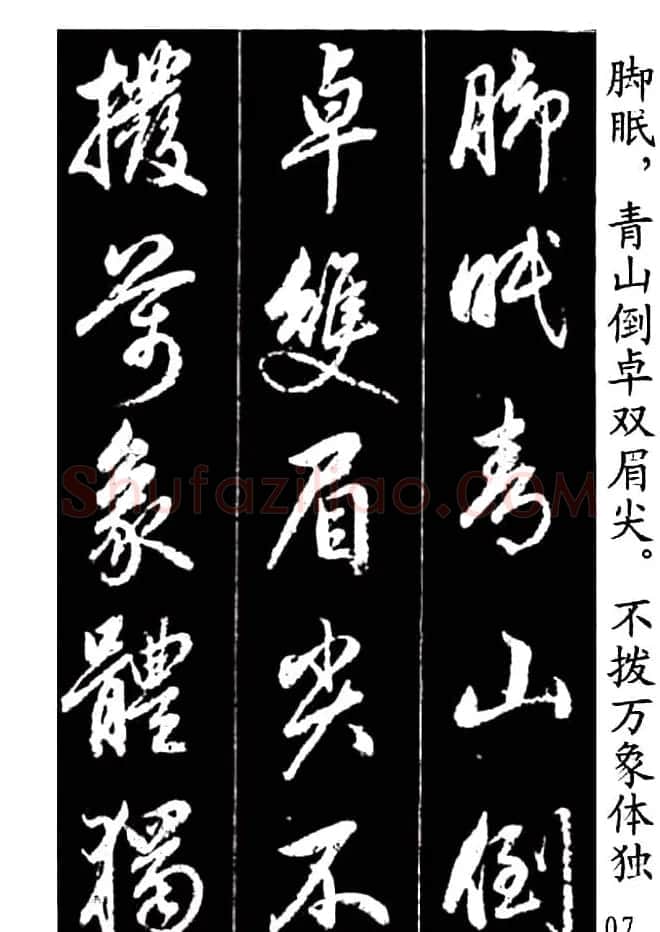 脚眠，青山倒卓双眉尖。不拨万象体独
脚眠青山倒
卓雙眉尖不
撥萬象體獨
Shufaziliao.COM
07